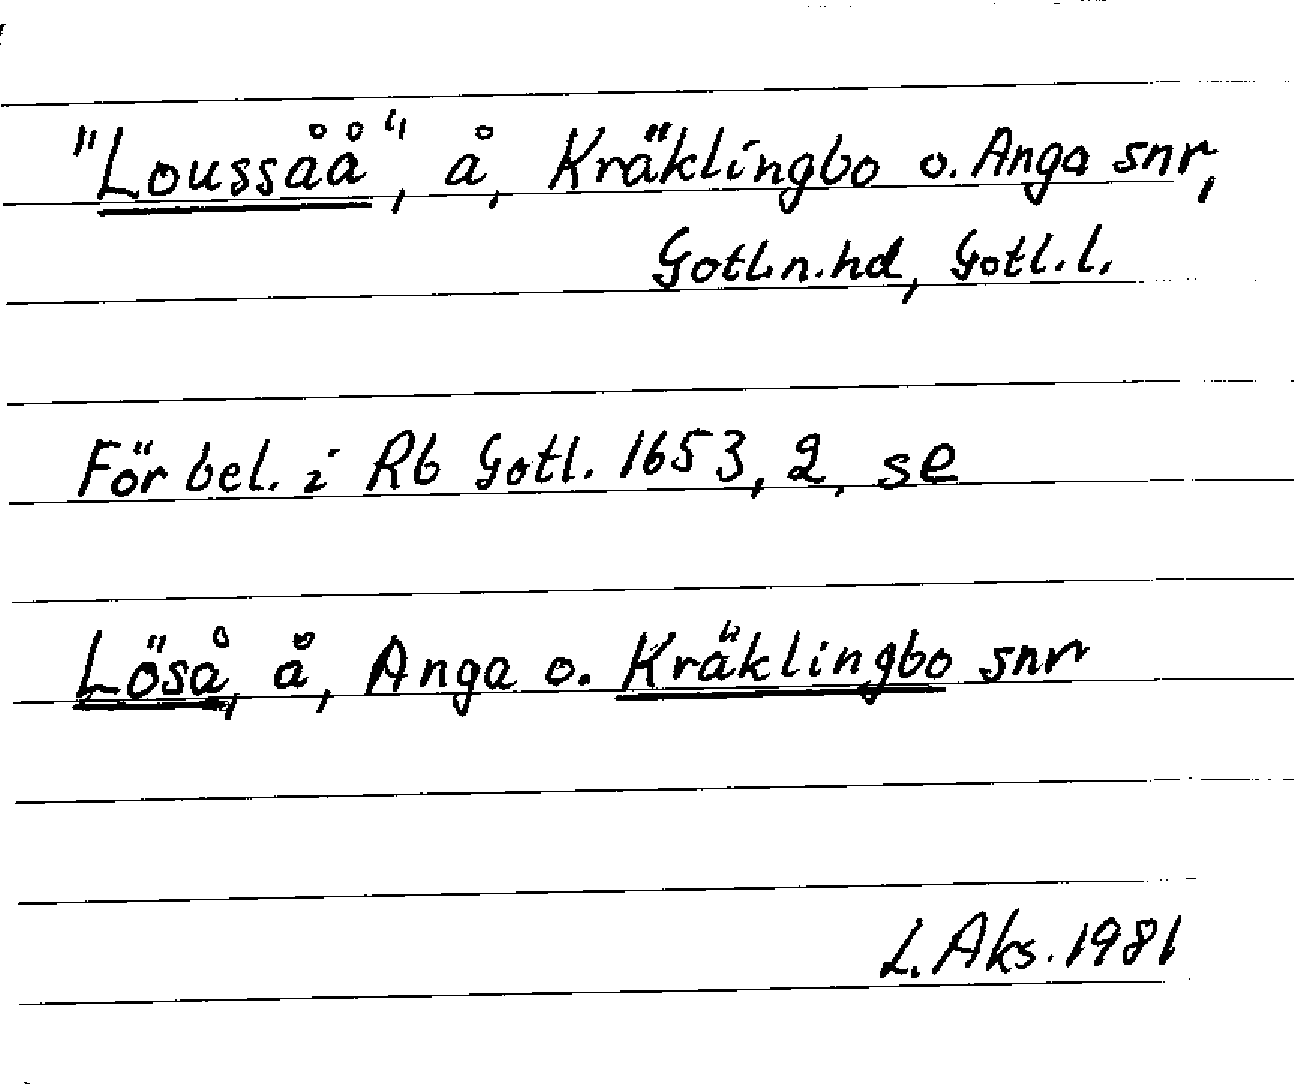 "Loussåå", å, Kräklingbo o. Anga snr,
Gotl.n.hd, Gotl.l.
För bel. i Rb Gotl. 1653, 2, se
Löså, å, Anga o. Kräklingbo snr
L. Aks. 1981